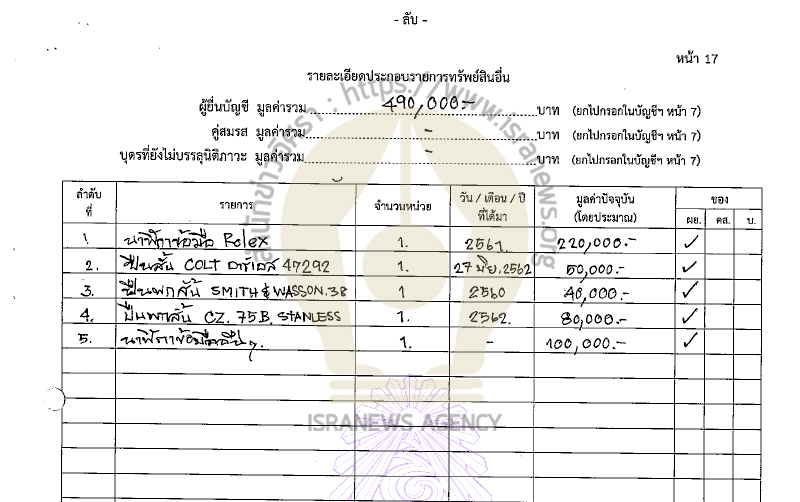 - ลับ -
หน้า 17
รายละเอียดประกอบรายการทรัพย์สินอื่น
ผู้ยื่นบัญชี มูลค่ารวม 490,000.- บาท (ยกไปกรอกในบัญชีฯ หน้า 7)
คู่สมรส มูลค่ารวม - บาท (ยกไปกรอกในบัญชีฯ หน้า 7)
บุตรที่ยังไม่บรรลุนิติภาวะ มูลค่ารวม - บาท (ยกไปกรอกในบัญชีฯ หน้า 7)
ลำดับที่ รายการ จำนวนหน่วย วัน / เดือน / ปี ที่ได้มา มูลค่าปัจจุบัน (โดยประมาณ) ของ
ผย. คส. บ.
1. นาฬิกาข้อมือ Rolex 1. 2561. 220,000.- ✓
2. ปืนสั้น COLT 47292 1. 27 มิย. 2562 50,000.- ✓
3. ปืนพกสั้น SMITH & WASSON.38 1 2560 40,000.- ✓
4. ปืนพกสั้น CZ. 75 B. STANLESS 1. 2562. 80,000.- ✓
5. นาฬิกาข้อมืออื่นๆ. 1. - 100,000.- ✓
สำนักข่าวอิศรา : https://www.isranews.org
ISRANEWS AGENCY